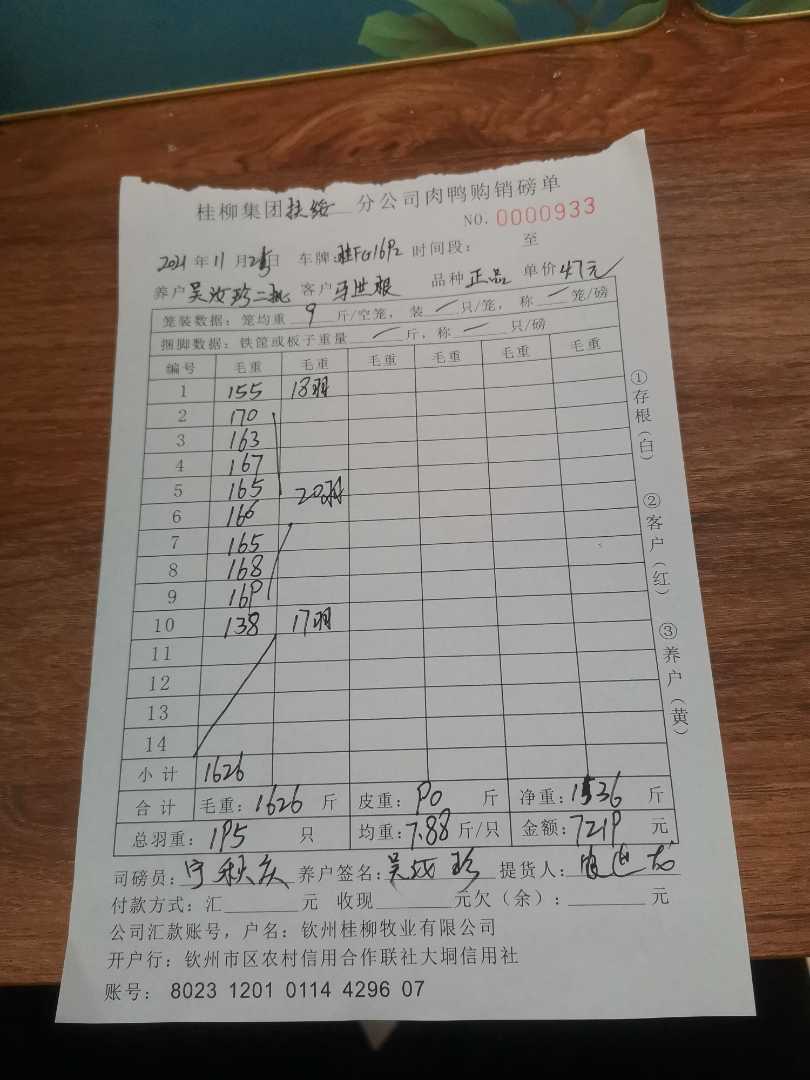 桂柳集团扶绥分公司肉鸭购销磅单
NO. 0000933
2021年11月25日 车牌:桂FG1692 时间段: 至
养户吴汝珍二批 客户马世根 品种正品 单价4.7元
笼装数据: 笼均重 9 斤/空笼, 装 / 只/笼, 称 / 笼/磅
捆脚数据: 铁筐或板子重量 / 斤, 称 / 只/磅
编号 毛重 毛重 毛重 毛重 毛重 毛重
1 155 18羽
2 170
3 163
4 167
5 165 20羽
6 166
7 165
8 168
9 169
10 138 17羽
11
12
13
14
小计 1626
合计 毛重: 1626 斤 皮重: 90 斤 净重: 1536 斤
总羽重: 195 只 均重: 7.88 斤/只 金额: 7219 元
司磅员: 宁秋庆 养户签名: 吴汝珍 提货人:
付款方式: 汇 元 收现 元欠(余): 元
公司汇款账号, 户名: 钦州桂柳牧业有限公司
开户行: 钦州市区农村信用合作联社大垌信用社
账号: 8023 1201 0114 4296 07
①存根(白)
②客户(红)
③养户(黄)